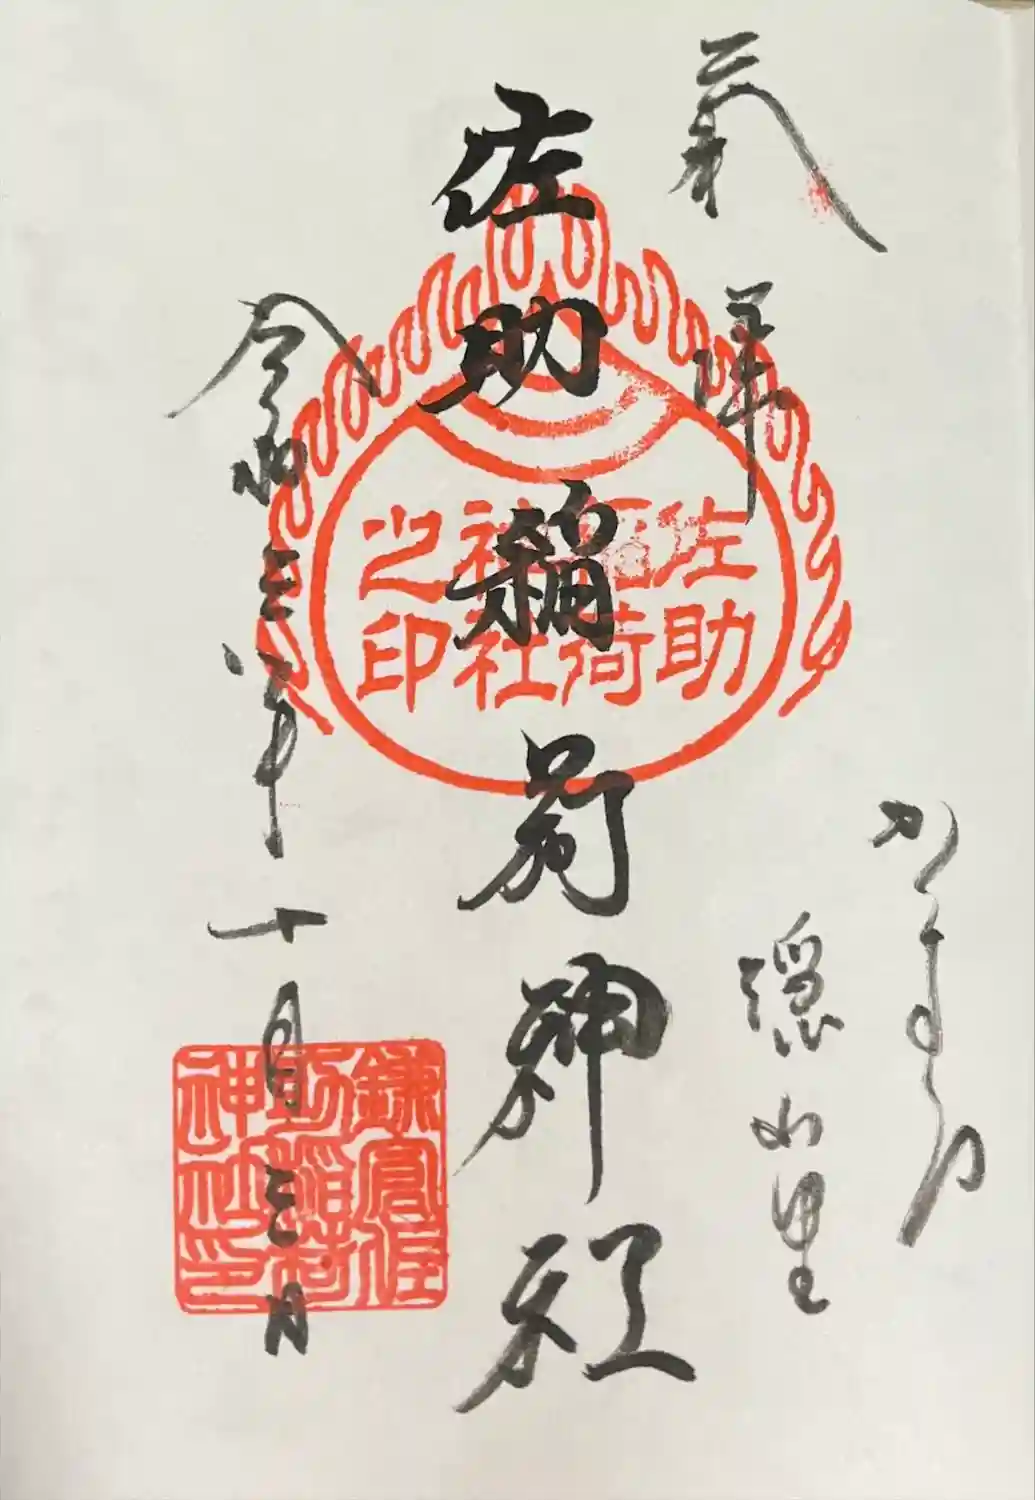 奉拝
かまくら
隠れ里
佐助稲荷神社
佐助
稲荷
神社
之印
令和三年十月三日
鎌倉佐
助稲荷
神社印